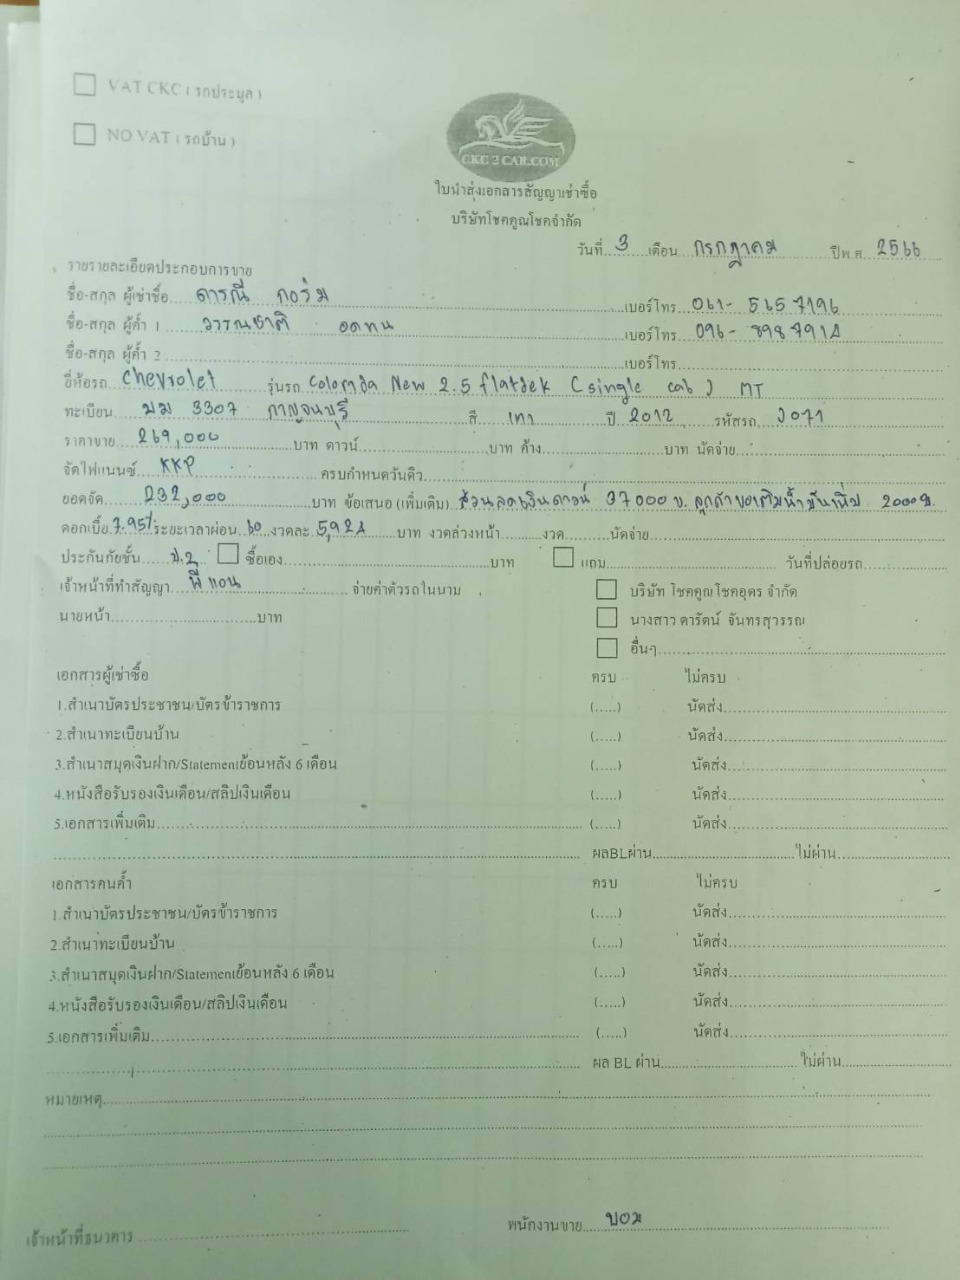 VAT CKC ( รถประมูล )
NO VAT ( รถบ้าน )
CKC 2 CAR.COM
ใบนำส่งเอกสารสัญญาเช่าซื้อ
บริษัทโชคคูณโชคจำกัด
วันที่ 3 เดือน กรกฎาคม ปีพ.ศ. 2566
รายรายละเอียดประกอบการขาย
ชื่อ-สกุล ผู้เช่าซื้อ ดารณี กอร์ม เบอร์โทร 061- 5657196
ชื่อ-สกุล ผู้ค้ำ 1 วารณชาติ อดทน เบอร์โทร 096-
ชื่อ-สกุล ผู้ค้ำ 2 เบอร์โทร
ยี่ห้อรถ Chevrolet รุ่นรถ New 2.5 Csingle cab ) MT
ทะเบียน มม 3307 กาญจนบุรี สี เทา ปี 2012 รหัสรถ J071
ราคาขาย 269,000 บาท ดาวน์ บาท ค้าง บาท นัดจ่าย
จัดไฟแนนซ์ KKP ครบกำหนดวันดิว
ยอดจัด 232,000 บาท ข้อเสนอ (เพิ่มเติม) ส่วนลดเงินดาวน์ 37000 บ. ลูกค้าขอเติมน้ำมันเพิ่ม 2000 บ.
ดอกเบี้ย 7.95% ระยะเวลาผ่อน 60 งวดละ 5,924 บาท งวดล่วงหน้า งวด นัดจ่าย
ประกันภัยชั้น ป.2 ซื้อเอง บาท แถม วันที่ปล่อยรถ
เจ้าหน้าที่ทำสัญญา พี่แอน จ่ายค่าตัวรถในนาม บริษัท โชคคูณโชคอุดร จำกัด
นายหน้า บาท นางสาว ดารัตน์ จันทรสุวรรณ
อื่นๆ
เอกสารผู้เช่าซื้อ ครบ ไม่ครบ
1.สำเนาบัตรประชาชน/บัตรข้าราชการ (.....) นัดส่ง
2.สำเนาทะเบียนบ้าน (.....) นัดส่ง
3.สำเนาสมุดเงินฝาก/Statementย้อนหลัง 6 เดือน (.....) นัดส่ง
4.หนังสือรับรองเงินเดือน/สลิปเงินเดือน (.....) นัดส่ง
5.เอกสารเพิ่มเติม (.....) นัดส่ง
ผลBLผ่าน ไม่ผ่าน
เอกสารคนค้ำ ครบ ไม่ครบ
1.สำเนาบัตรประชาชน/บัตรข้าราชการ (.....) นัดส่ง
2.สำเนาทะเบียนบ้าน (.....) นัดส่ง
3.สำเนาสมุดเงินฝาก/Statementย้อนหลัง 6 เดือน (.....) นัดส่ง
4.หนังสือรับรองเงินเดือน/สลิปเงินเดือน (.....) นัดส่ง
5.เอกสารเพิ่มเติม (.....) นัดส่ง
ผล BL ผ่าน ไม่ผ่าน
หมายเหตุ
เจ้าหน้าที่ธนาคาร พนักงานขาย บอม